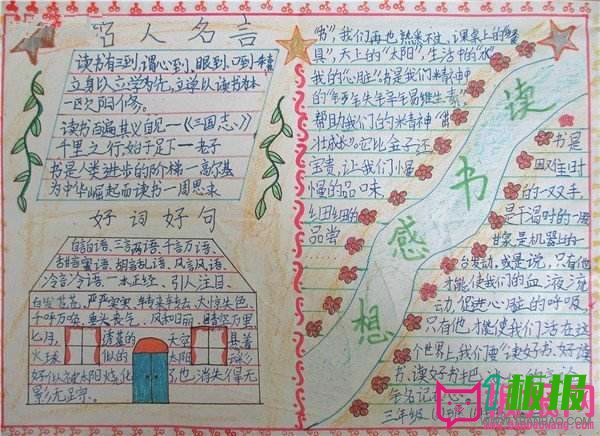 名人名言
读书有三到,谓心到,眼到,口到 朱熹
立身以立学为先,立学以读书为本
一欧阳修。
读书百遍其义自见一《三国志》
千里之行始于足下一老子
书是人类进步的阶梯一高尔基
为中华崛起而读书一周恩来
好词好句
自言自语、三言两语、千言万语、
甜言蜜语、胡言乱语、风言风语、
冷言冷语、一本正经、引人注目、
白发苍苍、严严实实、大惊失色、
千呼万唤、垂头丧气、风和日丽、晴空万里
七月,
天空
火球
似的
太阳
好似被太阳熔化了,也消失得无
影无踪。
读书感想
书”,我们再也熟悉不过,课桌上的“餐
具”,天上的“太阳”,生活中的“水”
我的“心脏”书是我们精神
的“维生素”
帮助我们的精神“茁
壮成长”它比金子还
宝贵,让我们慢
慢的品味
细细的
品尝
书是
困难时
的一双手
是干渴时的一股
甘泉是机器上的一
台发动,或是说,只有他
才能使我们的血液流
动,促进心脏的呼吸,
只有他,才能使我们活在这
个世界上,我们要“读好书、好读
书、读好书
三年级
板报
www.banbaowang.com